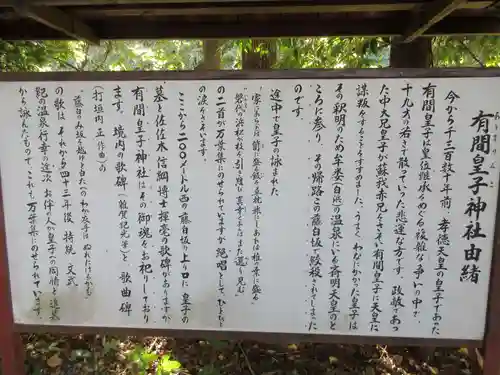 有間皇子神社由緒
今から千三百数十年前、孝徳天皇の皇子であった
有間皇子は皇位継承をめぐる複雑な争いの中で、
十九才の若さで散っていった悲運な方です。政敵であっ
た中大兄皇子が蘇我赤兄をさそい有間皇子に天皇に
謀叛をすることをすすめました。うまくわなにかかった皇子は
その釈明のため牟婁(白浜)の温泉にいる斉明天皇のと
ころに参り、その帰路この藤白坂で絞殺されてしまった
途中で皇子の詠まれた
家にあらば笥に盛る飯を草枕旅にしあれば椎の葉に盛る
磐代の浜松が枝を引き結び真幸くあらばまた還り見む
の二首が万葉集にのせられていますが絶唱としてひとびと
の涙をさそいます。
ここから二〇〇メートル西の藤白坂の上り口に皇子の
墓と佐佐木信綱博士揮毫の歌碑がありますが、
有間皇子神社はその御魂をお祀りしており
ます。境内の歌碑(雑賀紀光筆)と、歌曲碑
(打垣内 正 作曲)の
藤白のみ坂を越ゆと白たへのわが衣手はぬれにけるかも
の歌は、それから四十三年後、持統、文武
紀の温泉行幸の途次、お伴の人が皇子への同情と追慕
から詠んだもので、これも万葉集にのせられています。